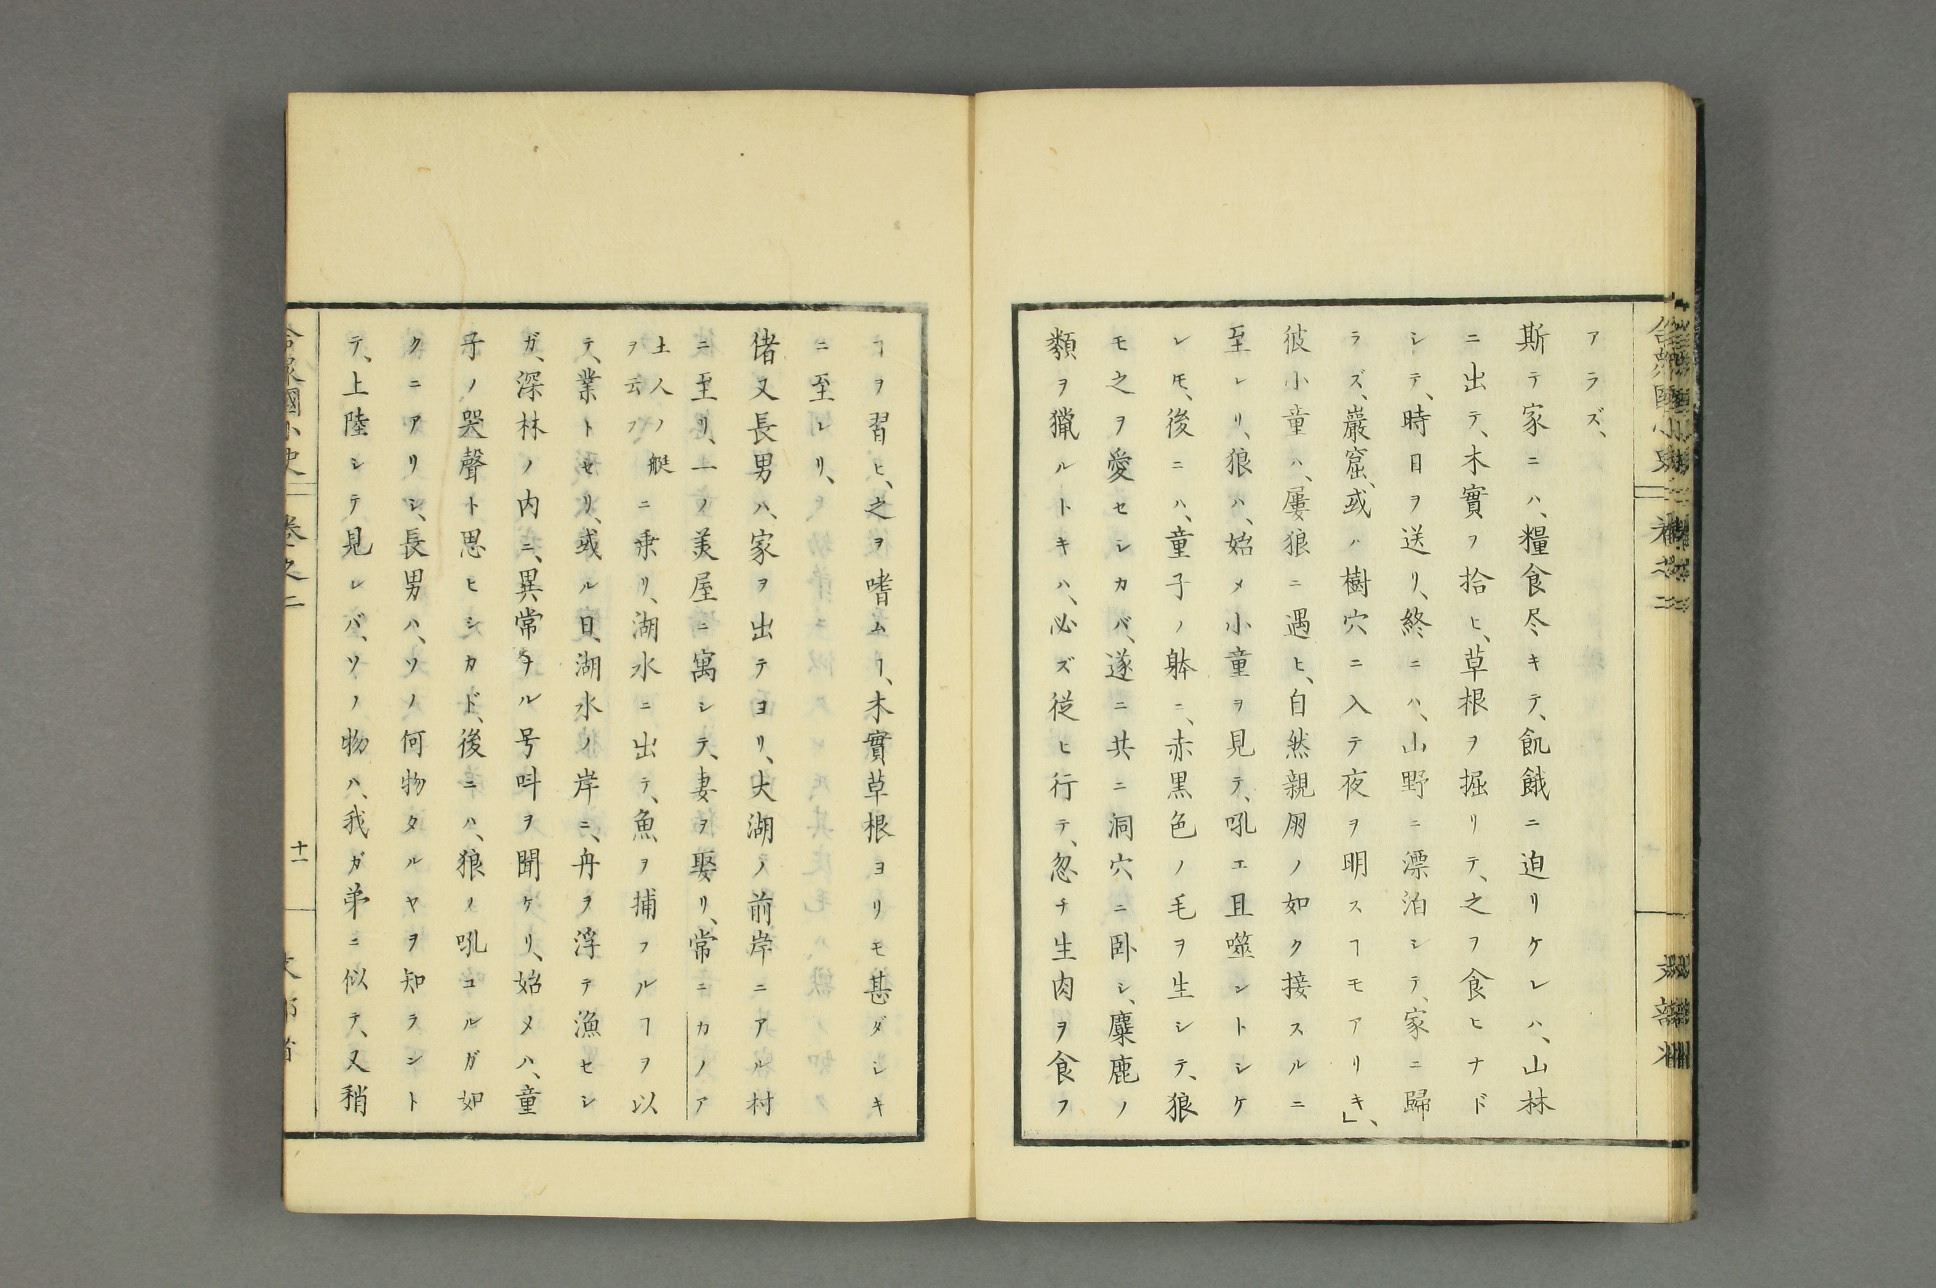 アラズ、
斯テ家ニハ、糧食尽キテ、飢餓ニ迫リケレハ、山林
ニ出テ、木實ヲ拾ヒ、草根ヲ掘リテ、之ヲ食ヒナド
シテ、時日ヲ送リ、終ニハ、山野ニ漂泊シテ、家ニ歸
ラズ、巖窟、或ハ樹穴ニ入テ夜ヲ明スヿモアリキ」、
彼小童ハ、屢狼ニ遇ヒ、自然親朋ノ如ク接スルニ
至レリ、狼ハ、始メ小童ヲ見テ、吼エ且噬ントシケ
レ𪜈、後ニハ、童子ノ躰ニ、赤黒色ノ毛ヲ生シテ、狼
モ之ヲ愛セシカバ、遂ニ共ニ洞穴ニ卧シ、麋鹿ノ
類ヲ獵ルトキハ、必ズ従ヒ行テ、忽チ生肉ヲ食フ
ヿヲ習ヒ、之ヲ嗜ムヿ、木實草根ヨリモ甚ダシキ
ニ至レリ、
偖又長男ハ、家ヲ出テヨリ、大湖ノ前岸ニアル村
ニ至リ、一ノ美屋ニ寓シテ、妻ヲ娶リ、常ニカノア
土人ノ艇
ヲ云フ
ニ乗リ、湖水ニ出テ、魚ヲ捕フルヿヲ以
テ、業トセリ、或ル日、湖水ノ岸ニ、舟ヲ浮テ漁セシ
ガ、深林ノ内ニ、異常ナル号呌ヲ聞ケリ、始メハ、童
子ノ哭聲ト思ヒシカド、後ニハ、狼ノ吼コルガ如
クニアリシ、長男ハ、ソノ何物タルヤヲ知ラント
テ、上陸シテ見レバ、ソノ物ハ、我ガ弟ニ似テ、又稍
合衆國小史 卷之二 十一 文部省